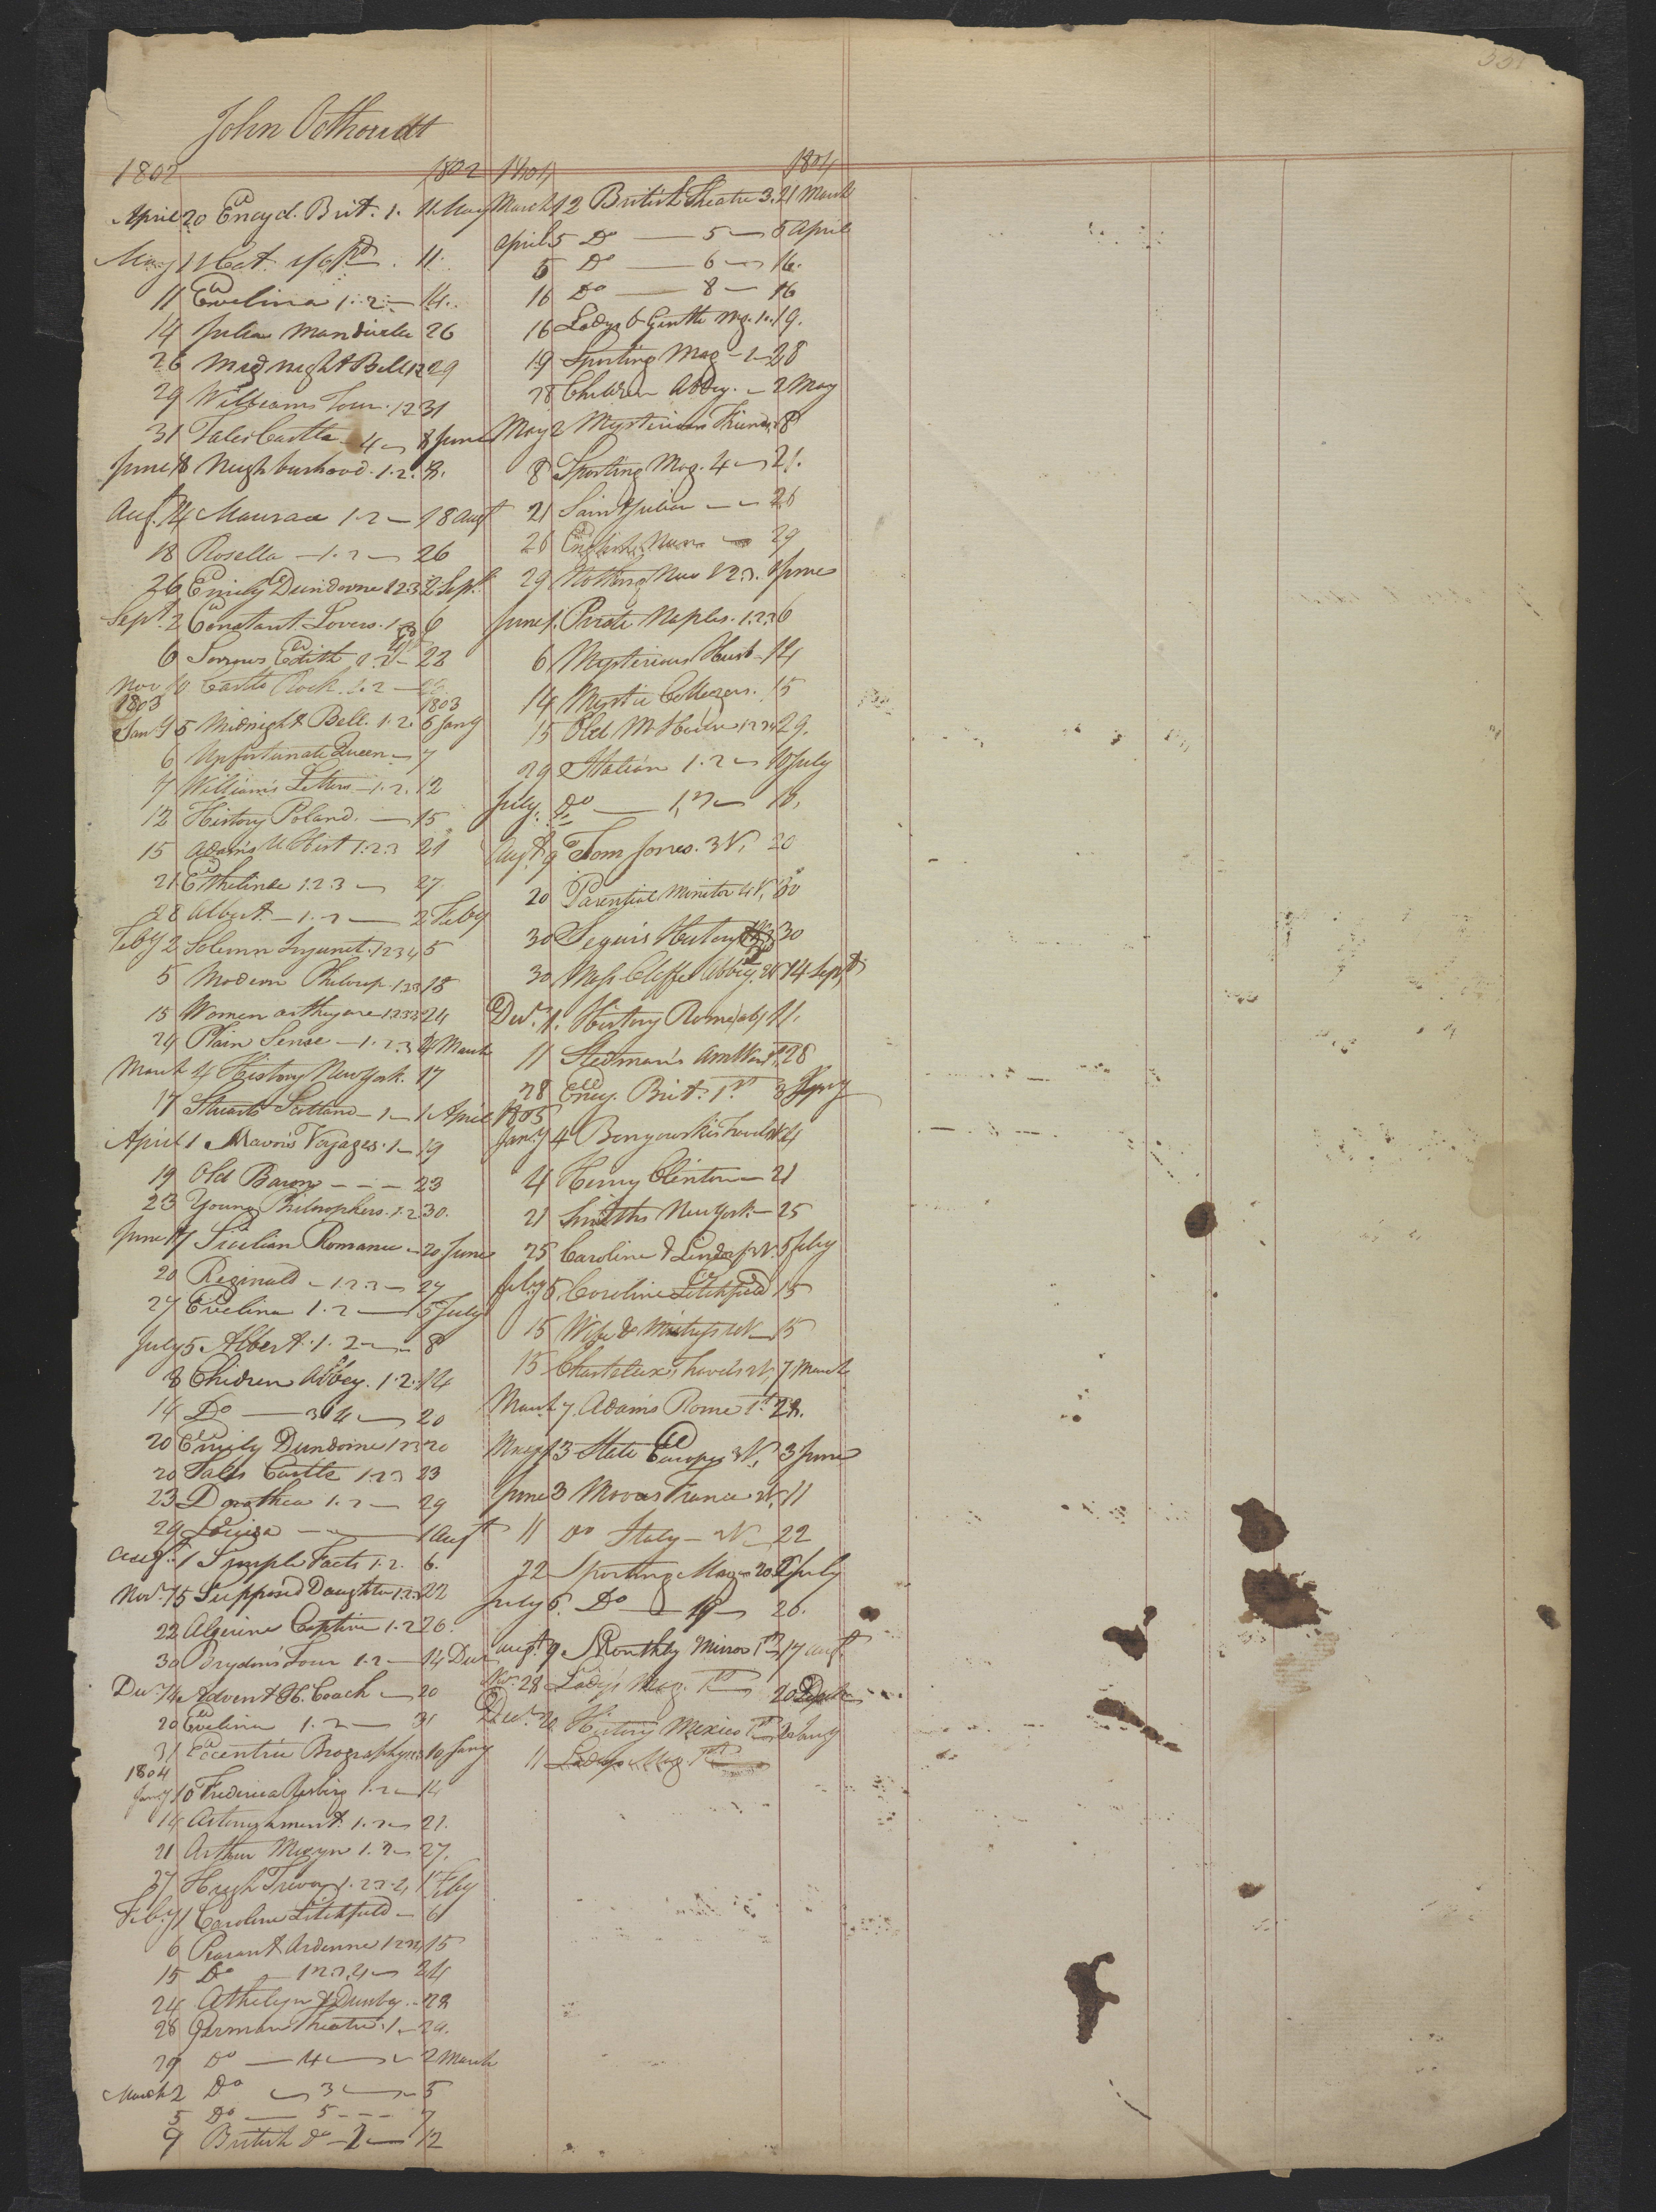 John Oothoudt
1802 1802
April 20 Encycl. Brit. 1. 11 May
May 11 11
11 Evelina 1.2 14
14 Julia Mandivile 26
26 Midnight Bell 1.2 29
29 Williams Tour 1.2 31
31 Tales Castle 4 8 June
June 8 Neighbourhood 1.2.
Augt. 14 1.2 18 Augt
18 Rosella 1.2 26
26 Emily Dundorne 1 2 3 2 Sept.
Sept. 2 Constant Lovers 1.2 6
6 Sorrows Edith 1.2 22
Nov 10 Castle Rock 1.2
1803 1803
Jany 5 Midnight Bell 1.2. 6 Jany
6 Unfortunate Queen 7
7 Williams Letters 1.2. 12
12 History Poland 15
15 Adams U Hist 1.2.3 21
21 Ethelinde 1.2.3 27
28 Albert 1.2 2 Feby
Feby 2 Solemn Injunct. 1 2 3 4 5
5 Modern Philosop. 1 2 3 15
15 Women as they are 1 2 3 4 24
24 Plain Sense 1.2.3 4 March
March 4 History New York. 17
17 Stuarts Scotland 1 1 April
April 1 Mavors Voyages 1 19
19 Old Baron 23
23 Young Philosophers 1.2 30.
June 17 Sicilian Romance 20 June
20 Reginald 1.2.3 27
27 Evelina 1.2 5 July
July 5 Albert 1.2 8
8 Children Abbey. 1.2. 14
14 Do 3 4 20
20 Emily Dundorne 1 2 3 20
20 Tales Castle 1 2 3 23
23 Dorothea 1.2 29
29 Louisa 1 Augt
Augt. 1 Simple Facts 1.2. 6.
Nov. 15 Supposed Daughter 1.2.3 22
22 Algerine Captive 1.2 26.
30 Brydons Tour 1.2 14 Decr
Decr 14 Advent H. Coach 20
20 Evelina 1.2 31
31 Eccentric Biography 10 Jany
1804
Jany 10 Frederica Risberg 1.2 14
14 1.2 21.
21 Arthur Mervyn 1.2 27.
27 Hugh Trevor 1.2.3.4 1 Feby
Feby 1 Caroline Litchfield 6
6 Peasant Ardenne 1 2 15
15 Do 1 2 3 4 24
24 28
28 German Theatre 1 29.
29 Do 4 2 March
March 2 Do 3 5
5 Do 5 7
9 British do 2 12
1804 1804
March 12 British Theatre 3. 21 March
April 5 Do 5 5 April
5 Do 6 16.
16 Do 8 16
16 Ladys & Gentle Mg. 1. 19.
19 Sporting Mag 1 28
28 Children Abbey. 2 May
May 2 Mysterious Friend 8
8 Sporting Mag. 4 21.
21 Saint Julian 26
26 English Nun 29
29 Nothing New 1 2 3. 1 June
June 1. Pirate Naples. 1.2 3 6
6 Mysterious Husb 14
14 Mystic Cottagers. 15
15 Old M House 1 2 3 4 29.
29 Italian 1.2 10 July
July. Do 1, 2
Augt 9 Tom Jones. 3 V. 20
20 Parential Monitor 4 V. 30
30 Seguis History 30
30 Abbey 14 Sept
Decr. 1. History Rome 11.
11 Stedman's Am War 1st. 28
28 Ency. Brit. 1st 3 Jany
1805
Jany 4 Benyowskis Travels 4
4 Henry Clinton 21
21 Smiths New York 25
25 Caroline & 5 Feby
Feby 5. Caroline Litchfield 15
15 Wife & Mistress 15
15 Chastelux's Travels 7 March
March 7 Adams Rome 1st 28.
May 13 State Europe 3 V. 3 June
June 3 France 11
11 Do Italy 22
22 Sporting Mag 20 6 July
July 6. Do 19 26.
Augt. 9 Monthly Mirror 1st 17 Augt
Nov. 28 Lady's Mag. 1st
Decr. History Mexico 1st
11 Ladys Mag. 1st